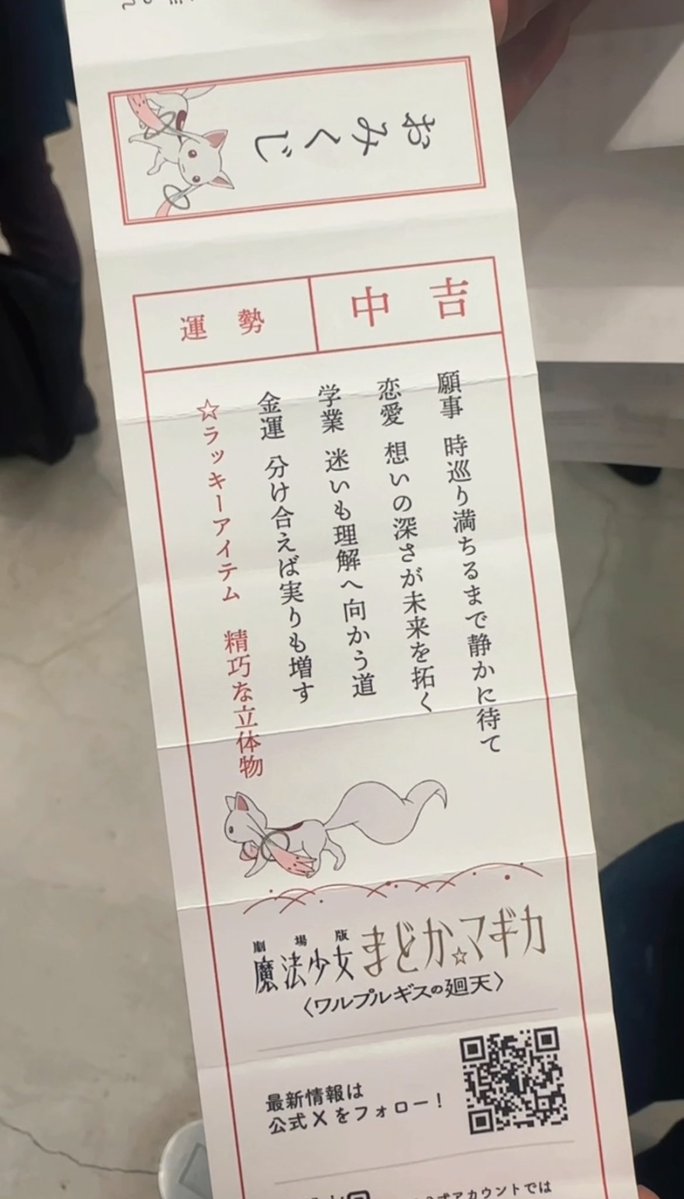 おみくじ
運勢
中吉
願事 時巡り満ちるまで静かに待て
恋愛 想いの深さが未来を拓く
学業 迷いも理解へ向かう道
金運 分け合えば実りも増す
☆ラッキーアイテム 精巧な立体物
劇場版
魔法少女まどか☆マギカ
〈ワルプルギスの廻天〉
最新情報は
公式Xをフォロー!
式アカウントでは